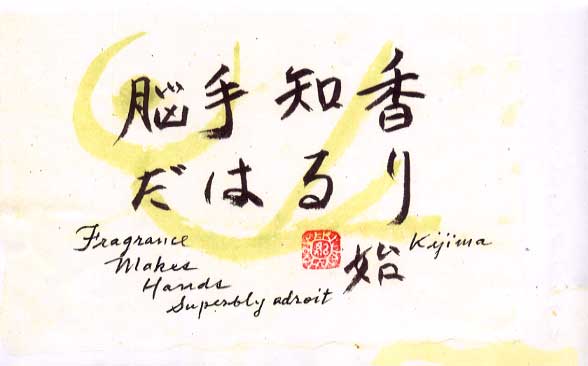 香り
知る
手は
脳だ
始
Kijima
Fragrance
Makes
Hands
Superbly adroit